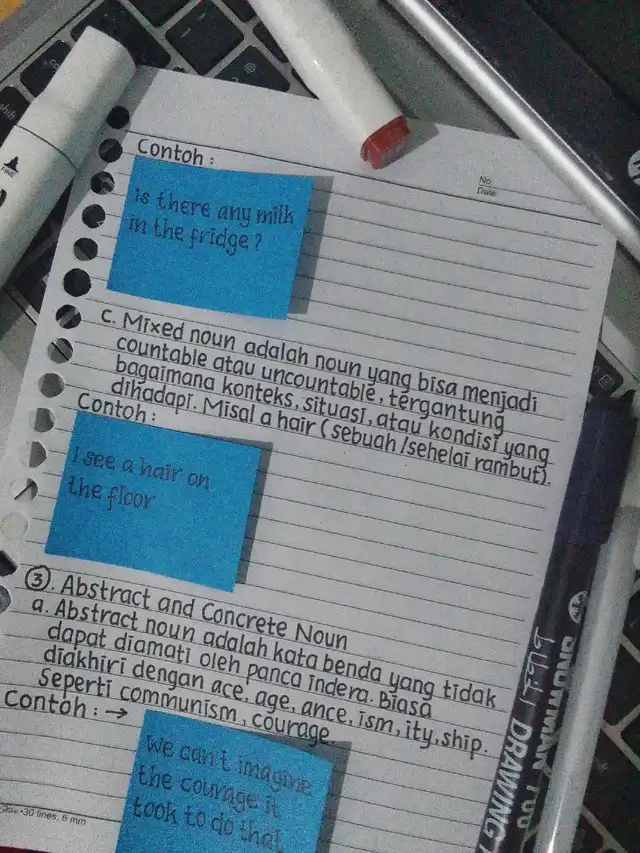 Contoh :
No
Date
Is there any milk
in the fridge ?
C. Mixed noun adalah noun yang bisa menjadi
countable atau uncountable, tergantung
bagaimana konteks, situasi, atau kondisi yang
dihadapi. Misal a hair ( sebuah /sehelai rambut).
Contoh :
I see a hair on
the floor
③. Abstract and Concrete Noun
a. Abstract noun adalah kata benda yang tidak
dapat diamati oleh panca indera. Biasa
diakhiri dengan ace, age, ance, ism, ity, ship.
Seperti communism, courage
Contoh : →
We can't imagine
the courage it
took to do that
30 lines, 6 mm
FINE
shift
DRAWING